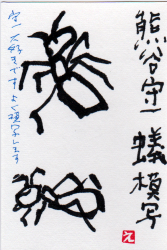 熊谷守一 蟻 模写
守一 大好きです よく模写します